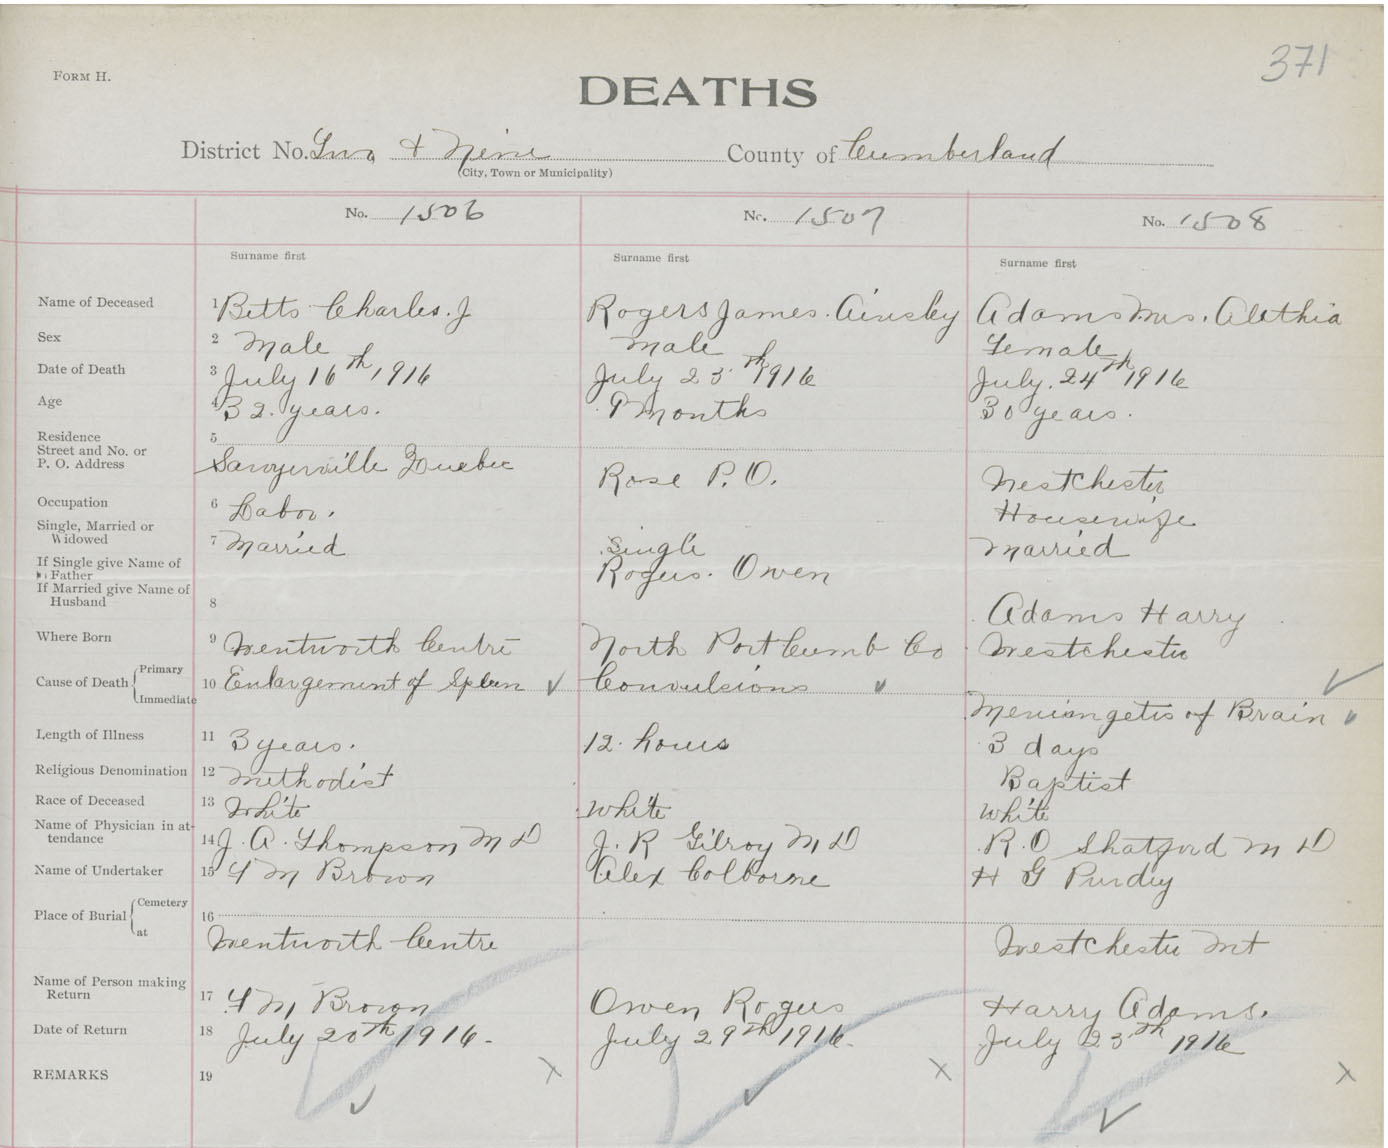 371
FORM H.
DEATHS
District No. Two & Nine County of Cumberland
(City, Town or Municipality)
No. 1506 No. 1507 No. 1508
Surname first Surname first Surname first
Name of Deceased 1 Betts Charles. J Rogers James. Ainsley Adams Mrs. Alethia
Sex 2 Male Male Female
Date of Death 3 July 16th 1916 July 23th 1916 July. 24th 1916
Age 4 32. years. 9 months 30 years.
Residence 5
Street and No. or
P. O. Address Sawyerville Quebec Rose P. O. Westchester
Occupation 6 Labor. Housewife
Single, Married or
Widowed 7 Married Single Married
If Single give Name of
Father Rogers. Owen
If Married give Name of
Husband 8 Adams Harry
Where Born 9 Wentworth Centre North Port Cumb Co Westchester
Cause of Death Primary
Immediate 10 Enlargement of Spleen Convulsions Meningetis of Brain
Length of Illness 11 3 years. 12 hours 3 days
Religious Denomination 12 Methodist Baptist
Race of Deceased 13 White White White
Name of Physician in at-
tendance 14 J. A. Thompson M D J. R Gilroy M D R. O Shatford M D
Name of Undertaker 15 F M Brown Alex Colborne H G Purdy
Place of Burial Cemetery
at 16 Wentworth Centre Westchester Mt
Name of Person making
Return 17 F M Brown Owen Rogers Harry Adams.
Date of Return 18 July 20th 1916. July 29th 1916. July 25th 1916
REMARKS 19 x x x